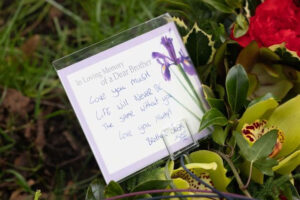 In Loving Memory
of a Dear Brother
Love you Mush
Life will never be
the same without you
Love you Mush!